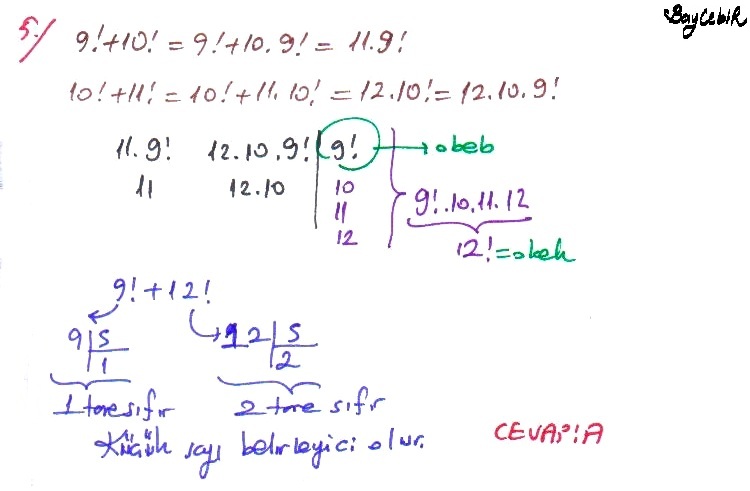 BayCebiR
5-) 9!+10! = 9!+10.9! = 11.9!
10!+11! = 10!+11.10! = 12.10! = 12.10.9!
11.9! 12.10.9! | 9! → obeb
11 12.10 | 10
11
12
9!.10.11.12
12! = obek
9!+12!
9 | 5 12 | 5
1 2
1 tane sıfır 2 tane sıfır
Küçük sayı belirleyici olur.
CEVAP: A